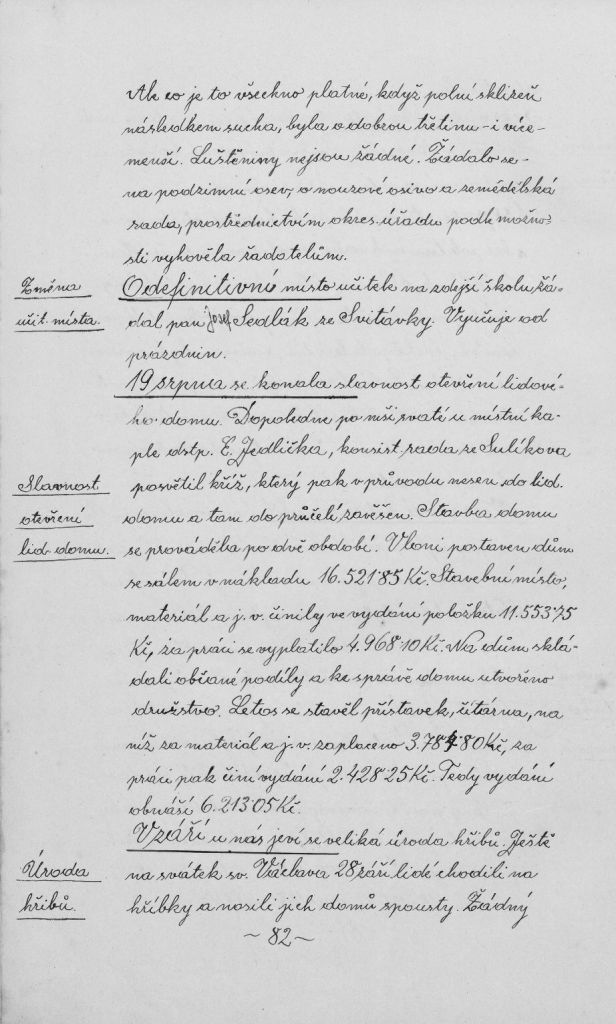 Ale co je to všechno platné, když polní sklizeň
následkem sucha, byla o dobrou třetinu - i více -
menší. Luštěniny nejsou žádné. Žádalo se -
na podzimní osev, o nouzové osivo a zemědělská
rada, prostřednictvím okres. úřadu podle možno-
sti vyhověla žadatelům.
Změna
učit. místa.
O definitivní místo učitele na zdejší školu žá-
dal pan Josef Sedlák ze Svitávky. Vyučuje od
prázdnin.
19 srpna se konala slavnost otevření lidové-
ho domu. Dopoledne po mši svaté u místní ka-
ple dstp. E. Jedlička, konsist. rada ze Sulíkova
Slavnost
otevření
lid. domu.
posvětil kříž, který pak v průvodu nesen do lid.
domu a tam do průčelí zavěšen. Stavba domu
se prováděla po dvě období. Vloni postaven dům
se sálem v nákladu 16.521·85 Kč. Stavební místo,
materiál a j. v. činily ve vydání položku 11.553·75
Kč, za práci se vyplatilo 4.968·10 Kč. Na dům sklá-
dali občané podíly a ke správě domu utvořeno
družstvo. Letos se stavěl přístavek, čítárna, na
níž za materiál a j. v. zaplaceno 3.784·80 Kč, za
práci pak činí vydání 2.428·25 Kč. Tedy vydání
obnáší 6.213·05 Kč.
V září u nás jeví se veliká úroda hřibů. Ještě
Úroda
hřibů.
na svátek sv. Václava 28 září lidé chodili na
hříbky a nosili jich domů spousty. Žádný
~ 82 ~